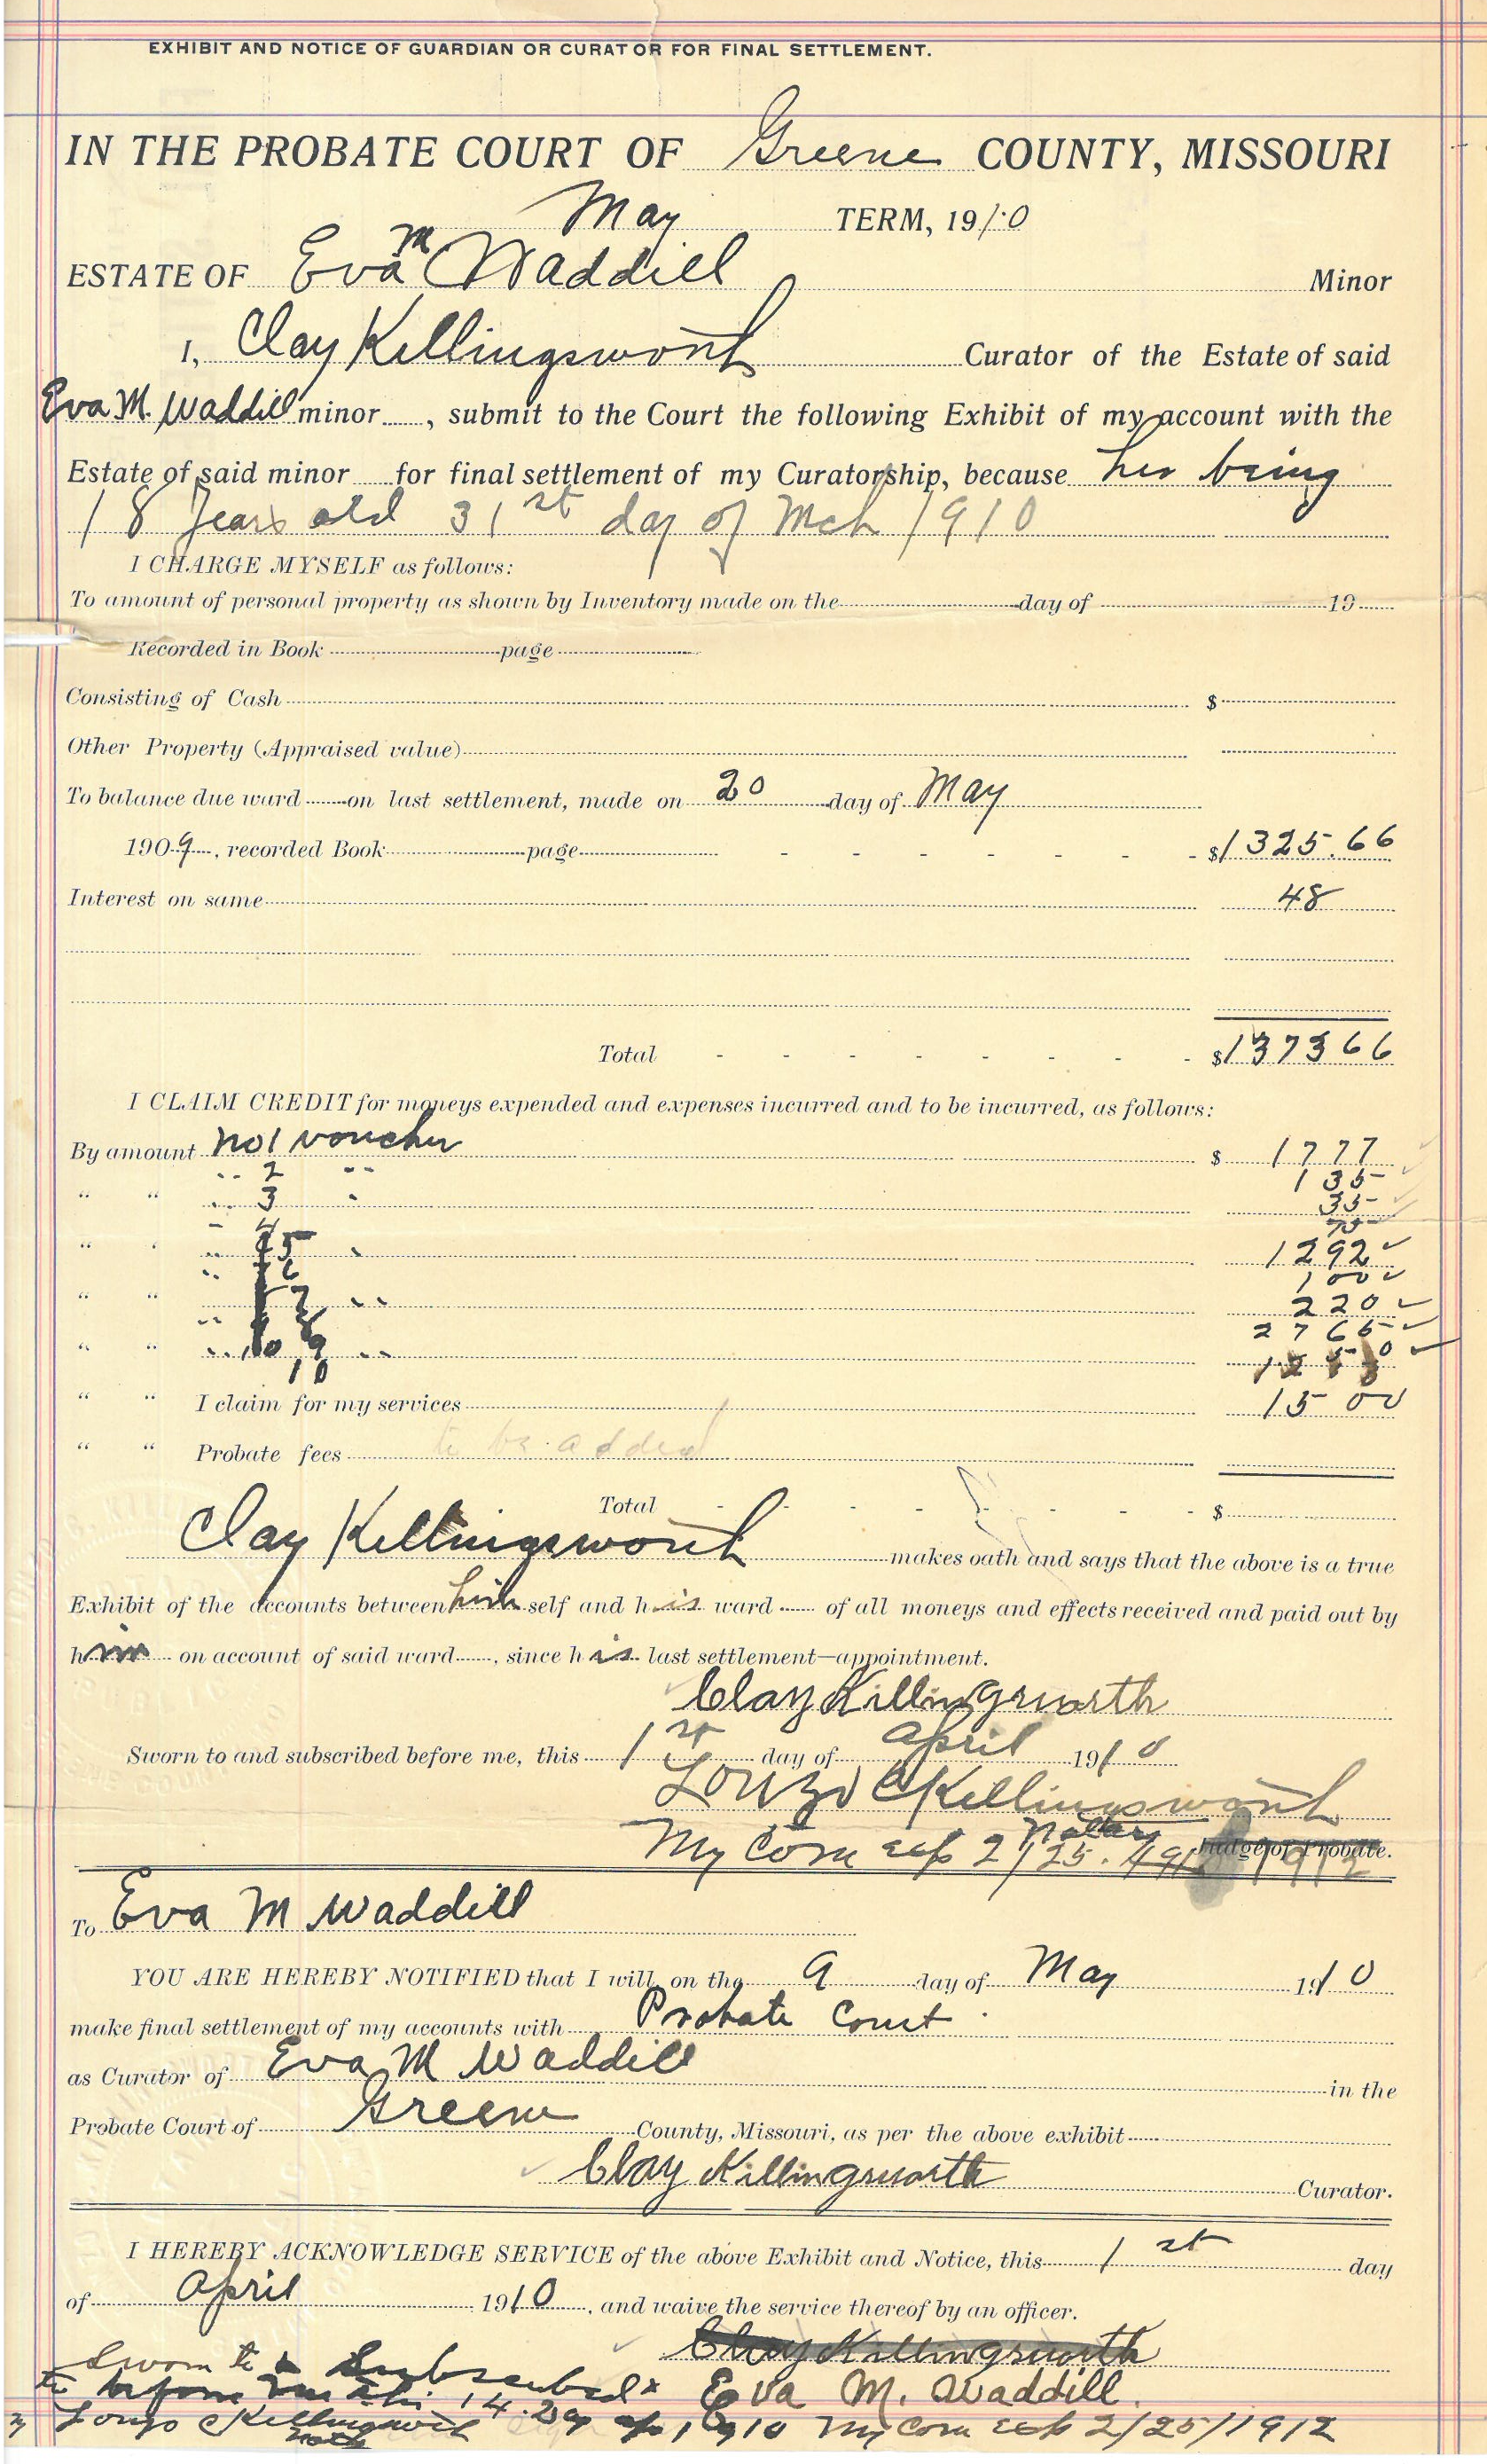 EXHIBIT AND NOTICE OF GUARDIAN OR CURATOR FOR FINAL SETTLEMENT.
IN THE PROBATE COURT OF Greene COUNTY, MISSOURI
May TERM, 1910
ESTATE OF Eva M Waddill Minor
I, Clay Killingsworth Curator of the Estate of said
Eva M. Waddill minor, submit to the Court the following Exhibit of my account with the
Estate of said minor for final settlement of my Curatorship, because her being
18 years old 31st day of Mch 1910
I CHARGE MYSELF as follows:
To amount of personal property as shown by Inventory made on the day of 19
Recorded in Book page
Consisting of Cash $
Other Property (Appraised value)
To balance due ward on last settlement, made on 20 day of May
1909, recorded Book page - - - - - - - $1325.66
Interest on same 48
Total - - - - - - - - $137366
I CLAIM CREDIT for moneys expended and expenses incurred and to be incurred, as follows:
By amount No 1 voucher $ 1777
.. 2 .. 135
" " .. 3 . 35
4 75
" " .. 5 . 1292
.. 6 100
" " .. 7 .. 220
.. 8 2765
" " .. 9 ..
10
" " I claim for my services 15 00
" " Probate fees to be added
Total - - - - - - - $
Clay Killingsworth makes oath and says that the above is a true
Exhibit of the accounts between himself and his ward of all moneys and effects received and paid out by
him on account of said ward, since his last settlement—appointment.
Clay Killingsworth
Sworn to and subscribed before me, this 1st day of April 1910
Lonzo C Killingsworth
Notary
My Com exp 2/25. 1912 Judge of Probate.
To Eva M Waddill
YOU ARE HEREBY NOTIFIED that I will, on the 9 day of May 1910
make final settlement of my accounts with Probate Court
as Curator of Eva M Waddill in the
Probate Court of Greene County, Missouri, as per the above exhibit
Clay Killingsworth Curator.
I HEREBY ACKNOWLEDGE SERVICE of the above Exhibit and Notice, this 1st day
of April 1910, and waive the service thereof by an officer.
Clay Killingsworth
Sworn to & Subscribed
to before me this 14. Day Eva M. Waddill.
Lonzo C Killingsworth Ap 1910 My Com exp 2/25/1912